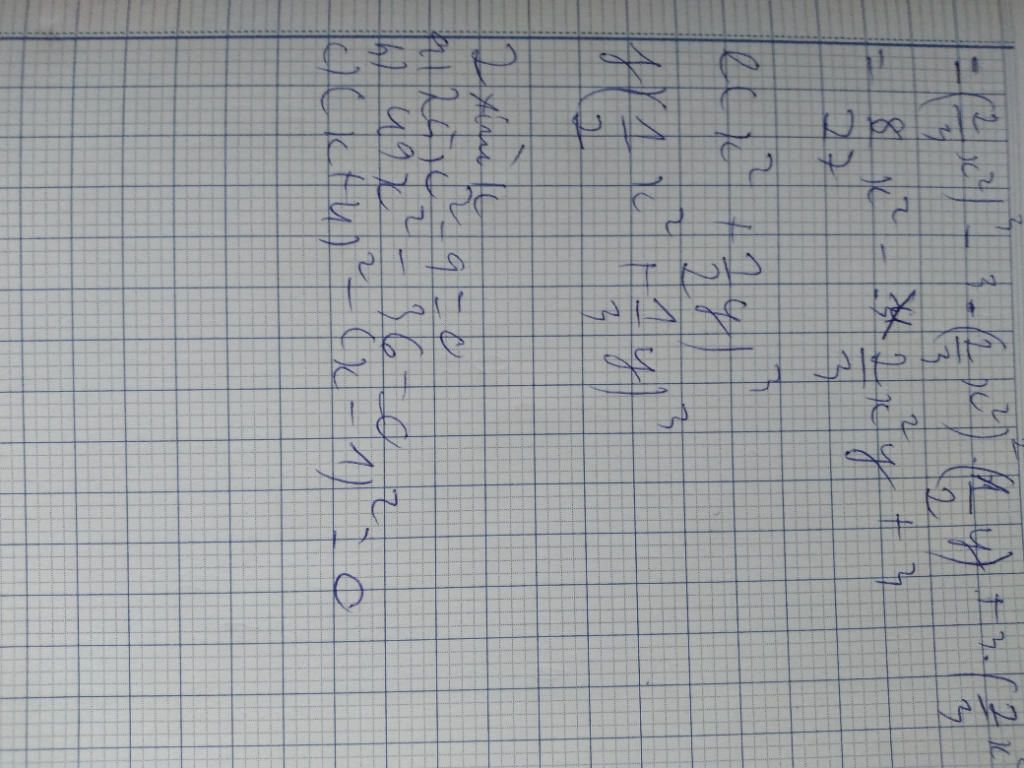 = (2/3 x²)³ - 3.(2/3 x²)².(1/2 y) + 3.(2/3 x
= 8/27 x² - 2/3 x² y + 3
e( x² + 2/2 y)³
f(1/2 x² + 1/3 y)³
2 tìm x
a) 25x² - 9 = 0
b) 49x² - 36 = 0
c) (x + 4)² - (x - 1)² = 0